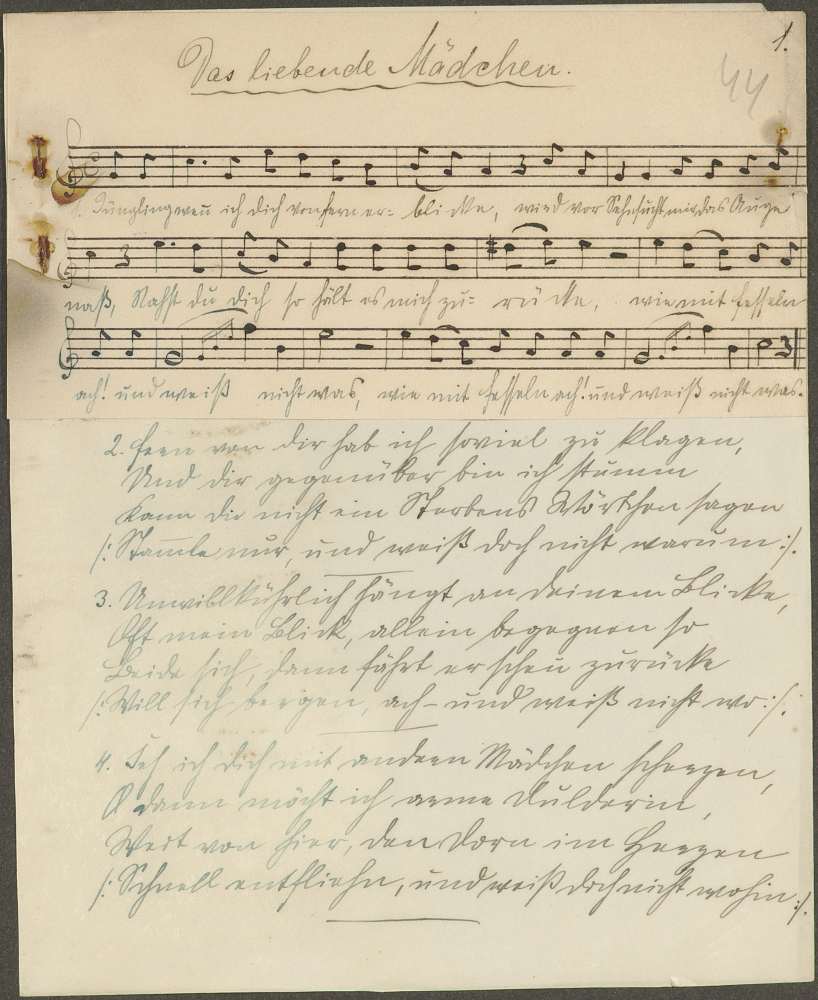 1.
Das liebende Mädchen.
44
1. Jüngling wen̄ ich dich von fern er= blicke, wird vor Sehnsucht mir das Auge
naß, Nahst du dich so hält es mich zu= rücke, wie mit Fesseln
ach! und weiß nicht was, wie mit Fesseln ach! und weiß nicht was.
2. Fern von dir hab ich soviel zu klagen,
Und dir gegenüber bin ich stumm
Kann dir nicht ein Sterbens Wörtchen sagen
/: Stam̄le nur, und weiß doch nicht warum :/.
3. Unwillkührlich hängt an deinem Blicke,
Oft mein Blick, allein begegnen so
Beide sich, dann fährt er scheu zurücke
/: Will sich bergen, ach – und weiß nicht wo :/:
4. Seh ich dich mit andern Mädchen scherzen,
O dann möcht ich arme Dulderin,
Weit von hier, den Dorn im Herzen
/: Schnell entfliehn, und weiß doch nicht wohin :/.